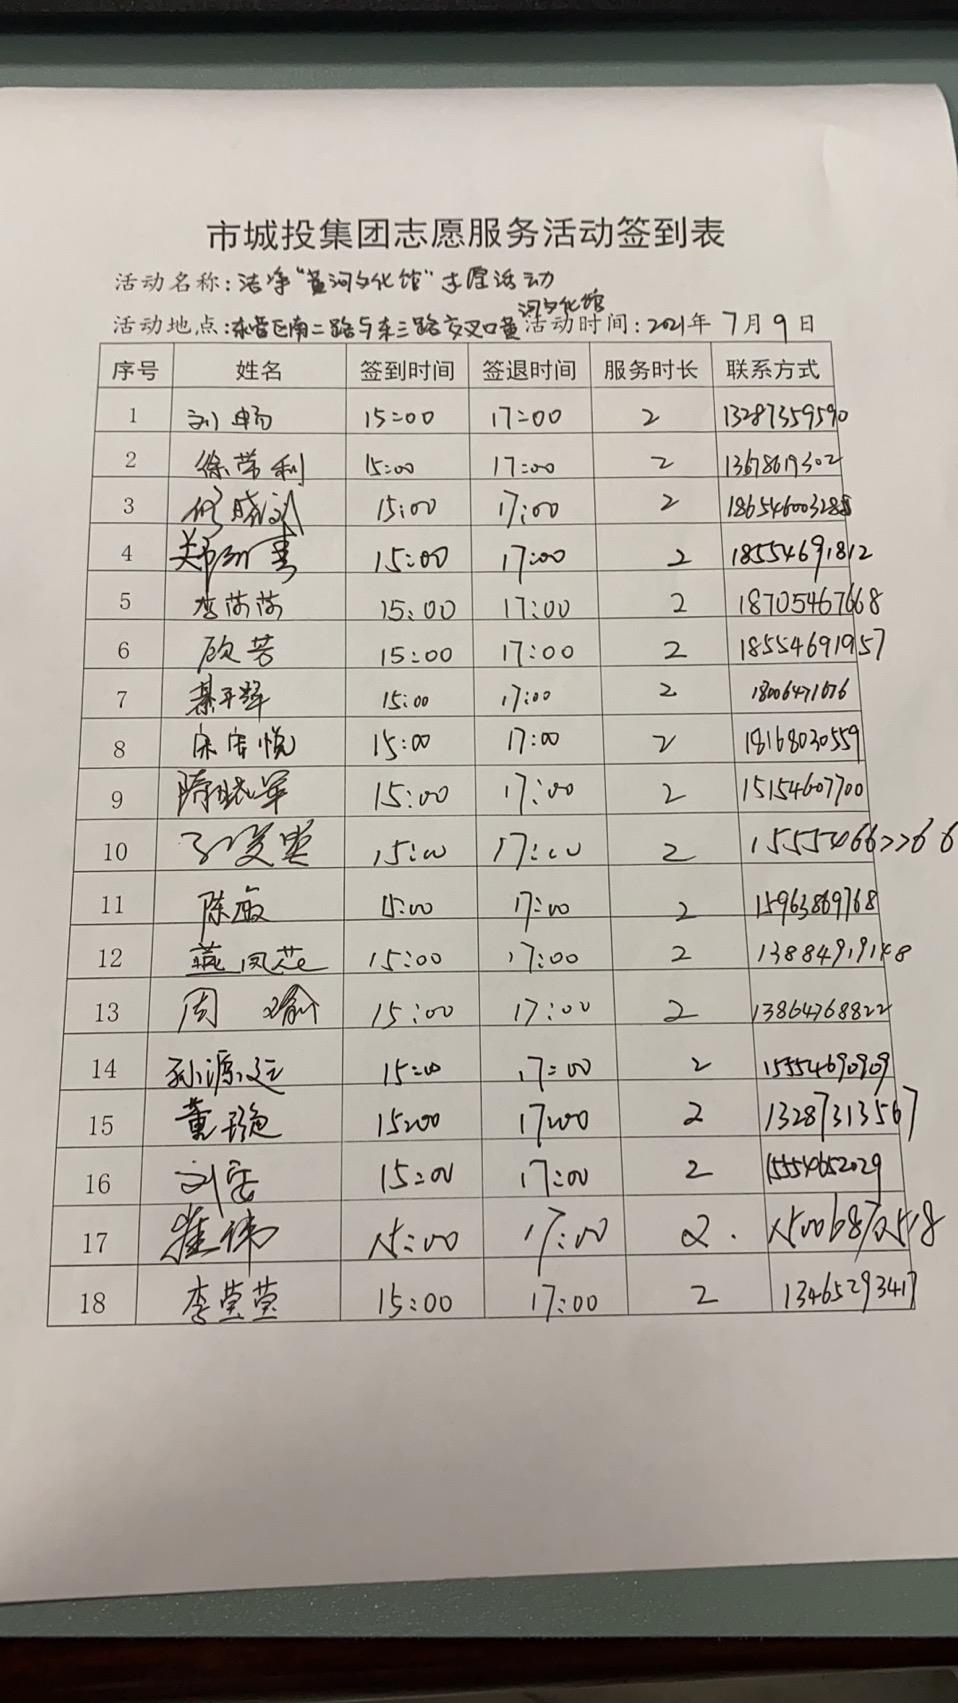 市城投集团志愿服务活动签到表
活动名称:洁净"黄河文化馆"志愿活动
活动地点:东营区南二路与东三路交叉口黄河文化馆 活动时间:2021年7月9日
序号 姓名 签到时间 签退时间 服务时长 联系方式
1 刘畅 15:00 17:00 2 13287359590
2 徐荣利 15:00 17:00 2 13678619302
3 15:00 17:00 2 186546003288
4 15:00 17:00 2 18554691812
5 李芮芮 15:00 17:00 2 18705467668
6 欣芳 15:00 17:00 2 18554691957
7 綦平辉 15:00 17:00 2
8 宋宏悦 15:00 17:00 2 18168030559
9 隋晓军 15:00 17:00 2 15154607700
10 15:00 17:00 2
11 陈敏 15:00 17:00 2 15963869768
12 燕凤芝 15:00 17:00 2 13884919148
13 周瑜 15:00 17:00 2 13864768822
14 孙源远 15:00 17:00 2 15554690909
15 董璐 15:00 17:00 2 13287313567
16 刘宏 15:00 17:00 2 15554652029
17 崔伟 15:00 17:00 2. 15006872518
18 李莹莹 15:00 17:00 2 13465293417